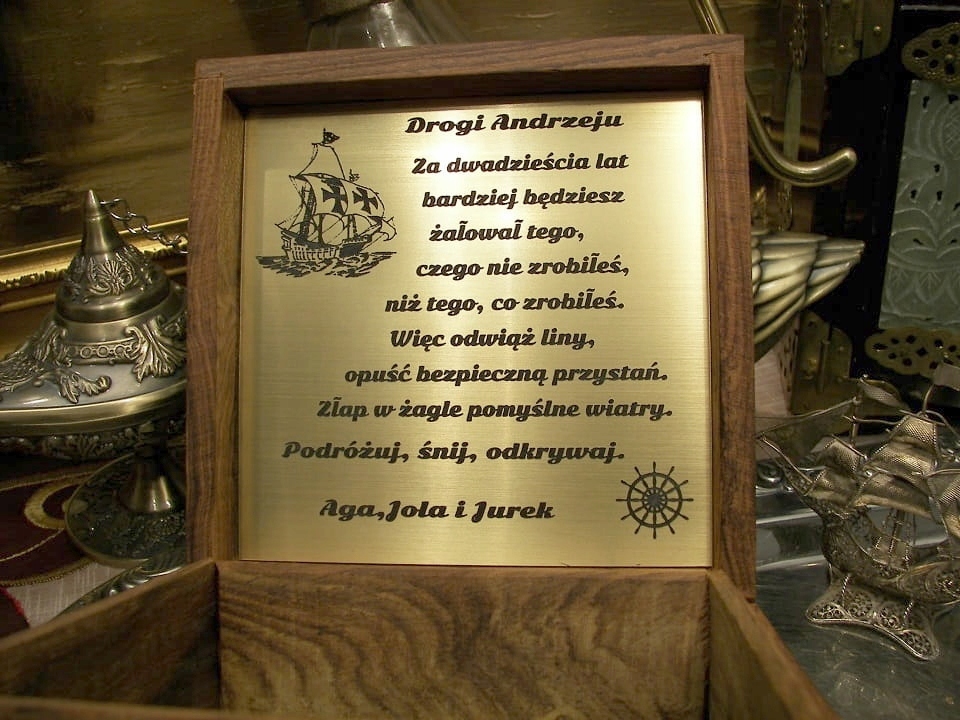 Drogi Andrzeju
Za dwadzieścia lat
bardziej będziesz
żałował tego,
czego nie zrobiłeś,
niż tego, co zrobiłeś.
Więc odwiąż liny,
opuść bezpieczną przystań.
Złap w żagle pomyślne wiatry.
Podróżuj, śnij, odkrywaj.
Aga,Jola i Jurek